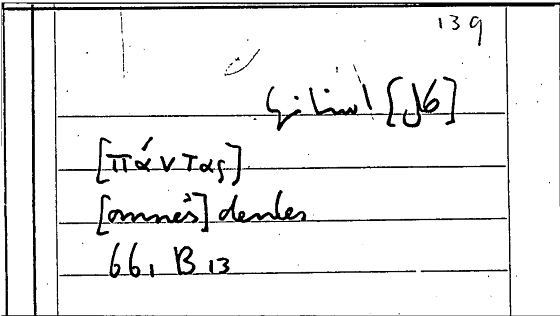 139
[كل]
[πάντας]
[omnes] dentes
66, B 13